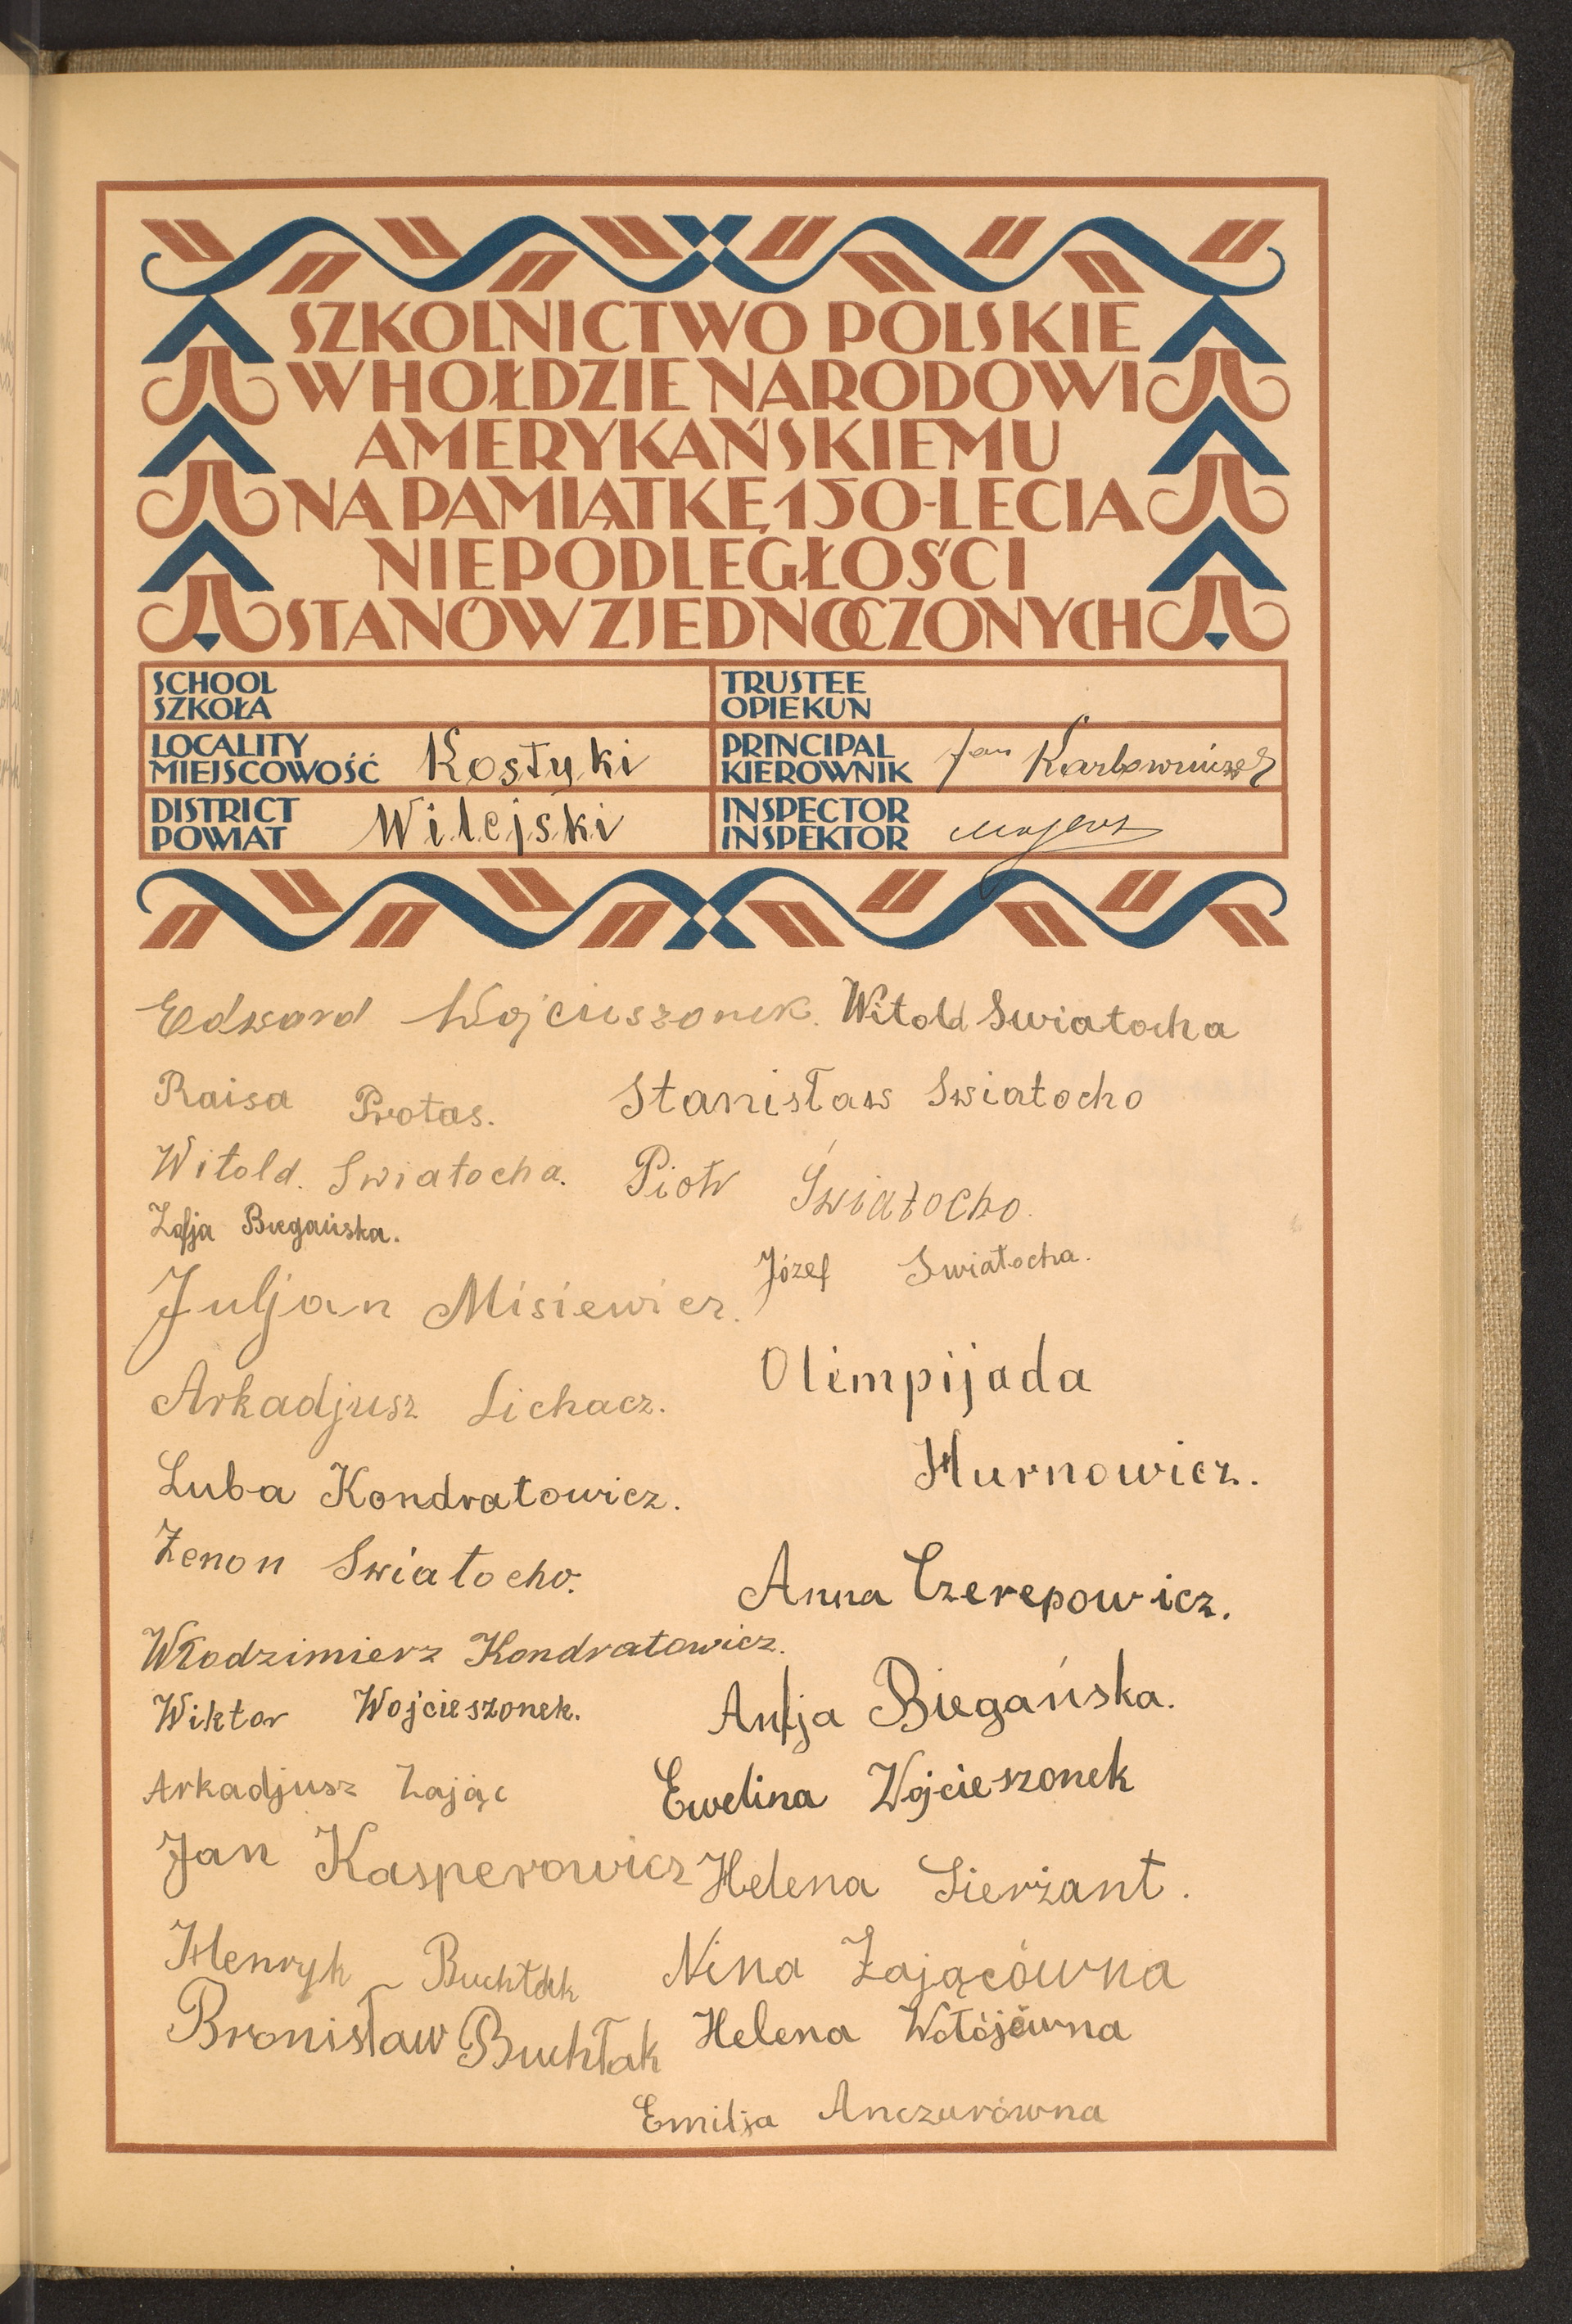 SZKOLNICTWO POLSKIE
W HOŁDZIE NARODOWI
AMERYKAŃSKIEMU
NA PAMIĄTKĘ 150-LECIA
NIEPODLEGŁOŚCI
STANÓW ZJEDNOCZONYCH
SCHOOL
SZKOŁA
TRUSTEE
OPIEKUN
LOCALITY
MIEJSCOWOŚĆ Kostyki
PRINCIPAL
KIEROWNIK Jan
DISTRICT
POWIAT Wilejski
INSPECTOR
INSPEKTOR
Edward Wojcieszonek. Witold Swiatocha
Raisa Protas. Stanisław Swiatocho
Witold. Swiatocha. Piotr Świątocho.
Zofja Biegańska.
Józef Swiatocha.
Juljan Misiewicz.
Olimpijada
Arkadjusz Lichacz.
Hurnowicz.
Luba Kondratowicz.
Zenon Swiatocho.
Anna Czerepowicz.
Włodzimierz Kondratowicz.
Wiktor Wojcieszonek. Biegańska.
Arkadjusz Zając Ewelina Wojcieszonek
Jan Kasperowicz Helena Sierżant.
Henryk Buchłak Nina Zającówna
Bronisław Buchłak Helena Wołójówna
Emilja Anczurówna